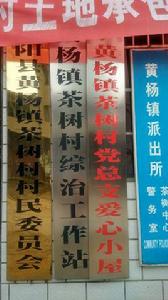 村土地承包
阳县黄杨镇茶树村村民委员会
杨镇茶树村综治工作站
黄杨镇茶树村党总支爱心小屋
黄杨镇派出所
茶树中心
警务室
COMMUNITY POLICING